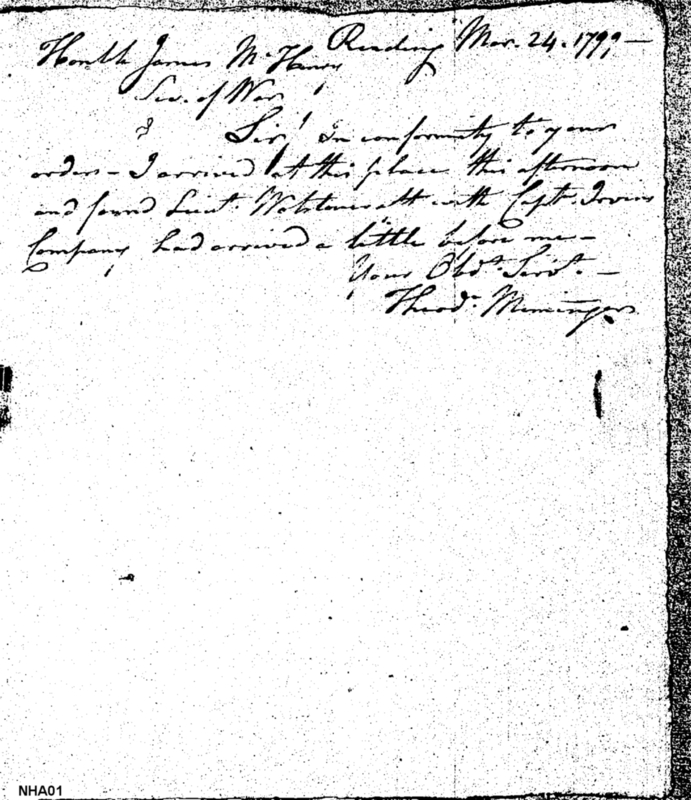 Reading Mar. 24. 1799 —
Honble James McHenry
Sec. of War
Sir, In conformity to your
orders – I arrived at this place this afternoon
and found Lieut. with Capt. Irvins
Company had arrived a little before me –
Your Obdt. Servt. –
Theodr. Meminger
NHA01